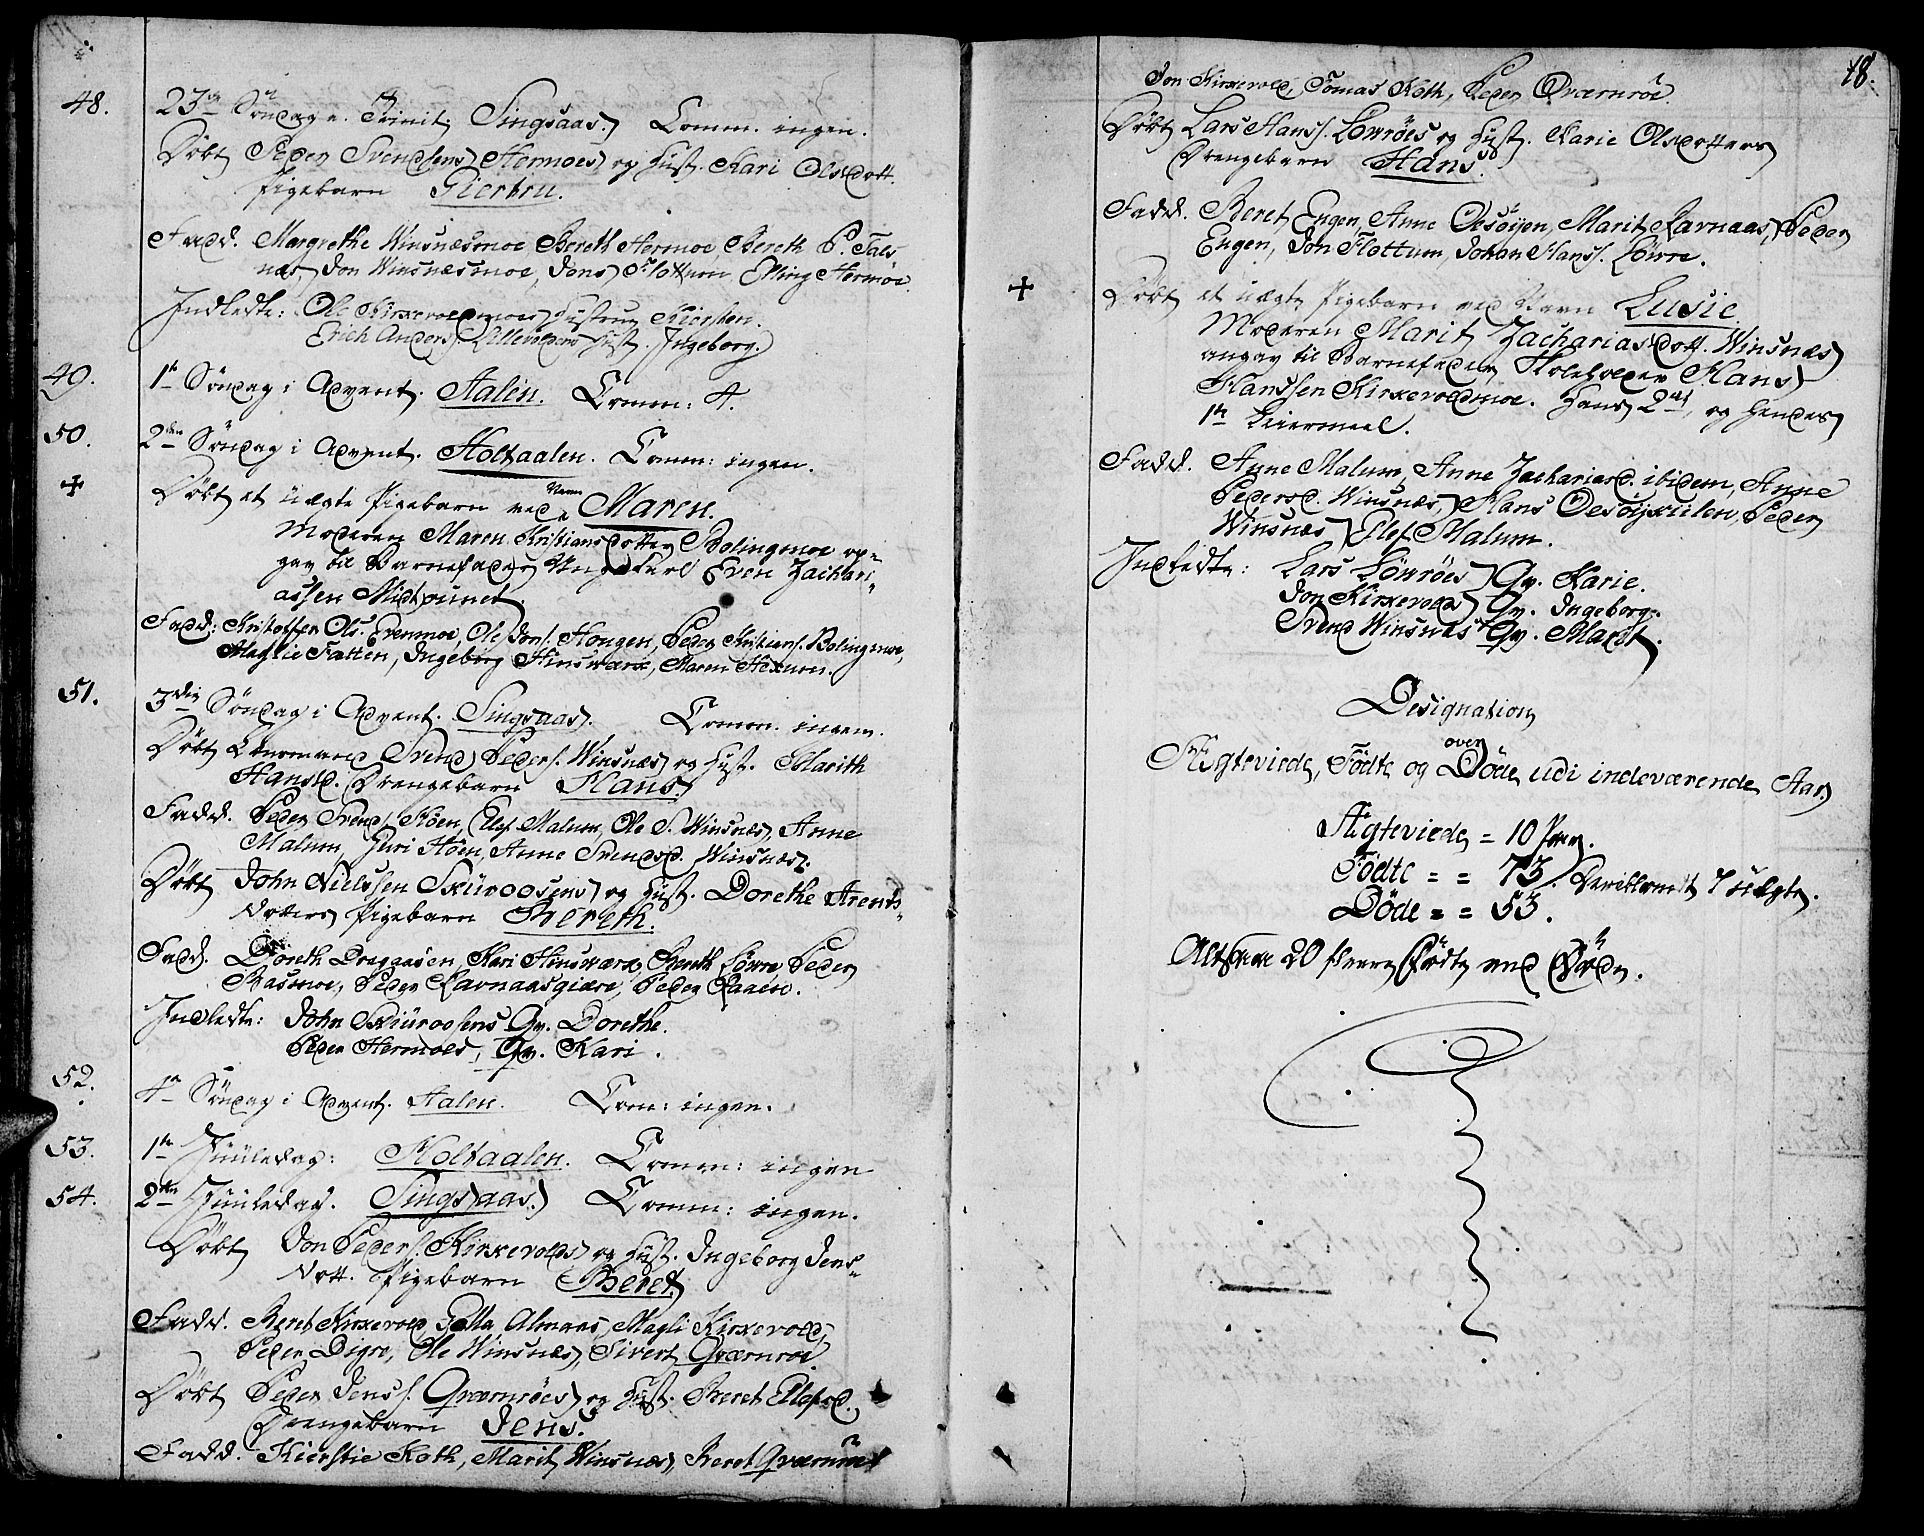 48. 23de Søndag n. Trinit. Singsaas. Comm. ingen.
Døbt Peder Svendsens Hermoes og Hust. Kari Olsdott.
Pigebarn Giertru.
Fadd. Margrethe Winsnæsmoe, Bereth Hermoe, Bereth P. Tals-
næs, Jon Winsnæsmoe, Jens Flottum, Elling Hermoe.
Indledte: Ole Kirkevoldmoes Hustrue Kiersten.
Erich Anders. Hust. Ingeborg.
49. 1te Søndag i Advent. Aalen. Comm: 4.
50. 2den Søndag i Advent. Holtaalen. Comm: ingen.
+ Døbt et uægte Pigebarn ved Navn Maren.
Moderen Maren Kristiansdotter Bolingmoe op-
gav til Barnefader Ungkarl Even Zachari-
assen Midtaunet.
Fadd: Kristoffer Ols. Evenmoe, Ole Jons. Hougen, Peder Kristians. Bolingmoe,
Maglie Fatten, Ingeborg Hinsværk, Maren Hexum.
51. 3die Søndag i Advent. Singsaas. Comm. ingen.
Døbt Svend Peders. Winsnæs og Hust. Marith
Hansd. Drengebarn Hans.
Fadd. Peder Svends. Høen, Elef Malum, Ole S. Winsnæs, Anne
Malum, Guri Høen, Anne Svendsd. Winsnæs.
Døbt John Nielssen Skuroosens og Hust. Dorethe Arents-
dotters Pigebarn Bereth.
Fadd. Doreth Dragaasen, Kari Hinsværk, Bereth Løvre, Peder
Basmoe, Peder Ravnaasgiære, Peder Raaen.
Indledte: John Skuroosens Qv. Dorethe.
Peder Hermoes, Qv. Kari.
52. 4de Søndag i Advent. Aalen. Com: ingen.
53. 1te Juuledag: Holtaalen. Comm: ingen
54. 2den Juuledag. Singsaas. Comm: ingen.
Døbt Jon Peders. Kirkevolds og Hust. Ingeborg Jens-
dott. Pigebarn Beret.
Fadd. Beret Kirkevold, Almaas, Magli Kirkevold,
Peder Digre, Ole Winsnæs, Sivert Qværnrøe.
Døbt Peder Jenss. Qværnrøes og Hust. Beret Ellefsd.
Drengebarn Jens.
Fadd. Kierstie Koth, Marit Winsnæs, Beret Qværnrøe
18.
Jon Kirkevold, Tomas Koth, Peder Qværnrøe.
Døbt Lars Hanss. Løvrøes og Hust. Karie Olsdotters
Drengebarn Hans.
Fadd. Beret Engen, Anne Oesøijen, Marit Ravnaas, Peder
Engen, Jon Flottum, Johan Hanss. Løvre.
+ Døbt et uægte Pigebarn ved Navn Lusie.
Moderen Marit Zachariasdott. Winsnæs
angav til Barnefader Hans
Hanssen Kirkevoldmoe. Hans 2det, og hendes
1te Leiermael.
Fadd. Anne Malum, Anne Zachariasd. ibidem, Anne
Pedersd. Winsnæs, Hans Peder
Winsnæs, Elef Malum.
Indledte: Lars Løvrøes Qv. Karie.
Jon Kirkevolds Qv. Ingeborg.
Svend Winsnæs Qv. Marit.
Designation
over
Ægteviede, Fødte og Døde udi indeværende Aar.
Ægteviede = 10 Par.
Fødte = = 73. Deriblandt 7 uægte.
Døde = = 53.
Altsaa 20 fleere Fødte end Døde.